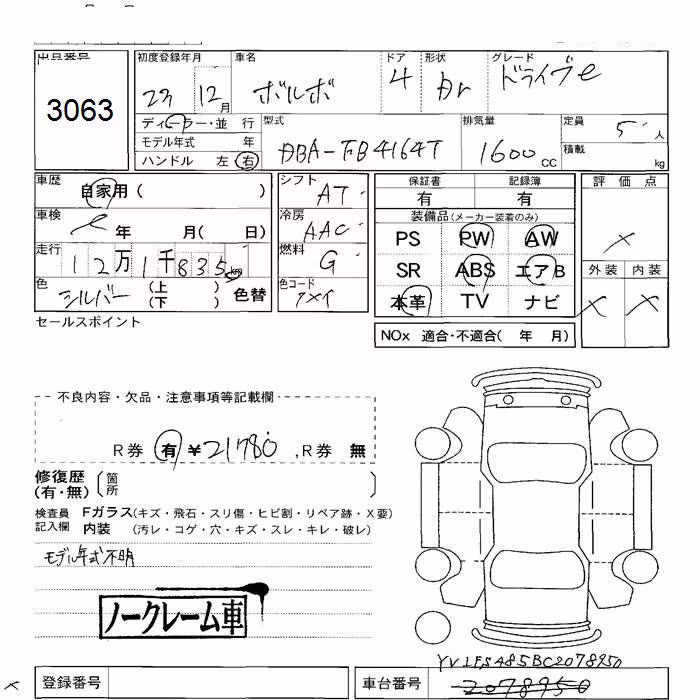 出品番号 初度登録年月 車名 ドア 形状 グレード
3063 23 12月 ボルボ 4 Br ドライブe
ディーラー・並 行 型式 排気量 定員 5人
モデル年式 年 DBA-FB4164T 1600cc 積載 kg
ハンドル 左 右
車歴 自家用( ) シフト AT 保証書 記録簿 評価点
有 有
車検 年 月( 日) 冷房 AAC 装備品(メーカー装着のみ) ×
PS PW AW
走行 12万1千835km 燃料 G SR ABS エアB 外装 内装
色 シルバー (上 下) 色替 色コード 本革 TV ナビ × ×
セールスポイント NOx 適合・不適合( 年 月)
不良内容・欠品・注意事項等記載欄
R券 有 ¥21780 , R券 無
修復歴 箇所
(有・無)
検査員 Fガラス(キズ・飛石・スリ傷・ヒビ割・リペア跡・X要)
記入欄 内装 (汚レ・コゲ・穴・キズ・スレ・キレ・破レ)
モデル年式不明
ノークレーム車
YV1FS485BC2078950
× 登録番号 車台番号 2078950